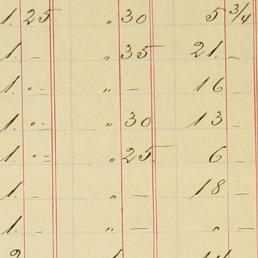 1. 25 " 30 5 3/4
1. - " 35 21. -
1. -- " - 16 -
1. -- " 30 13 -
1. -- " 25 6 -
1. - " - 18 -
1. - " - " -